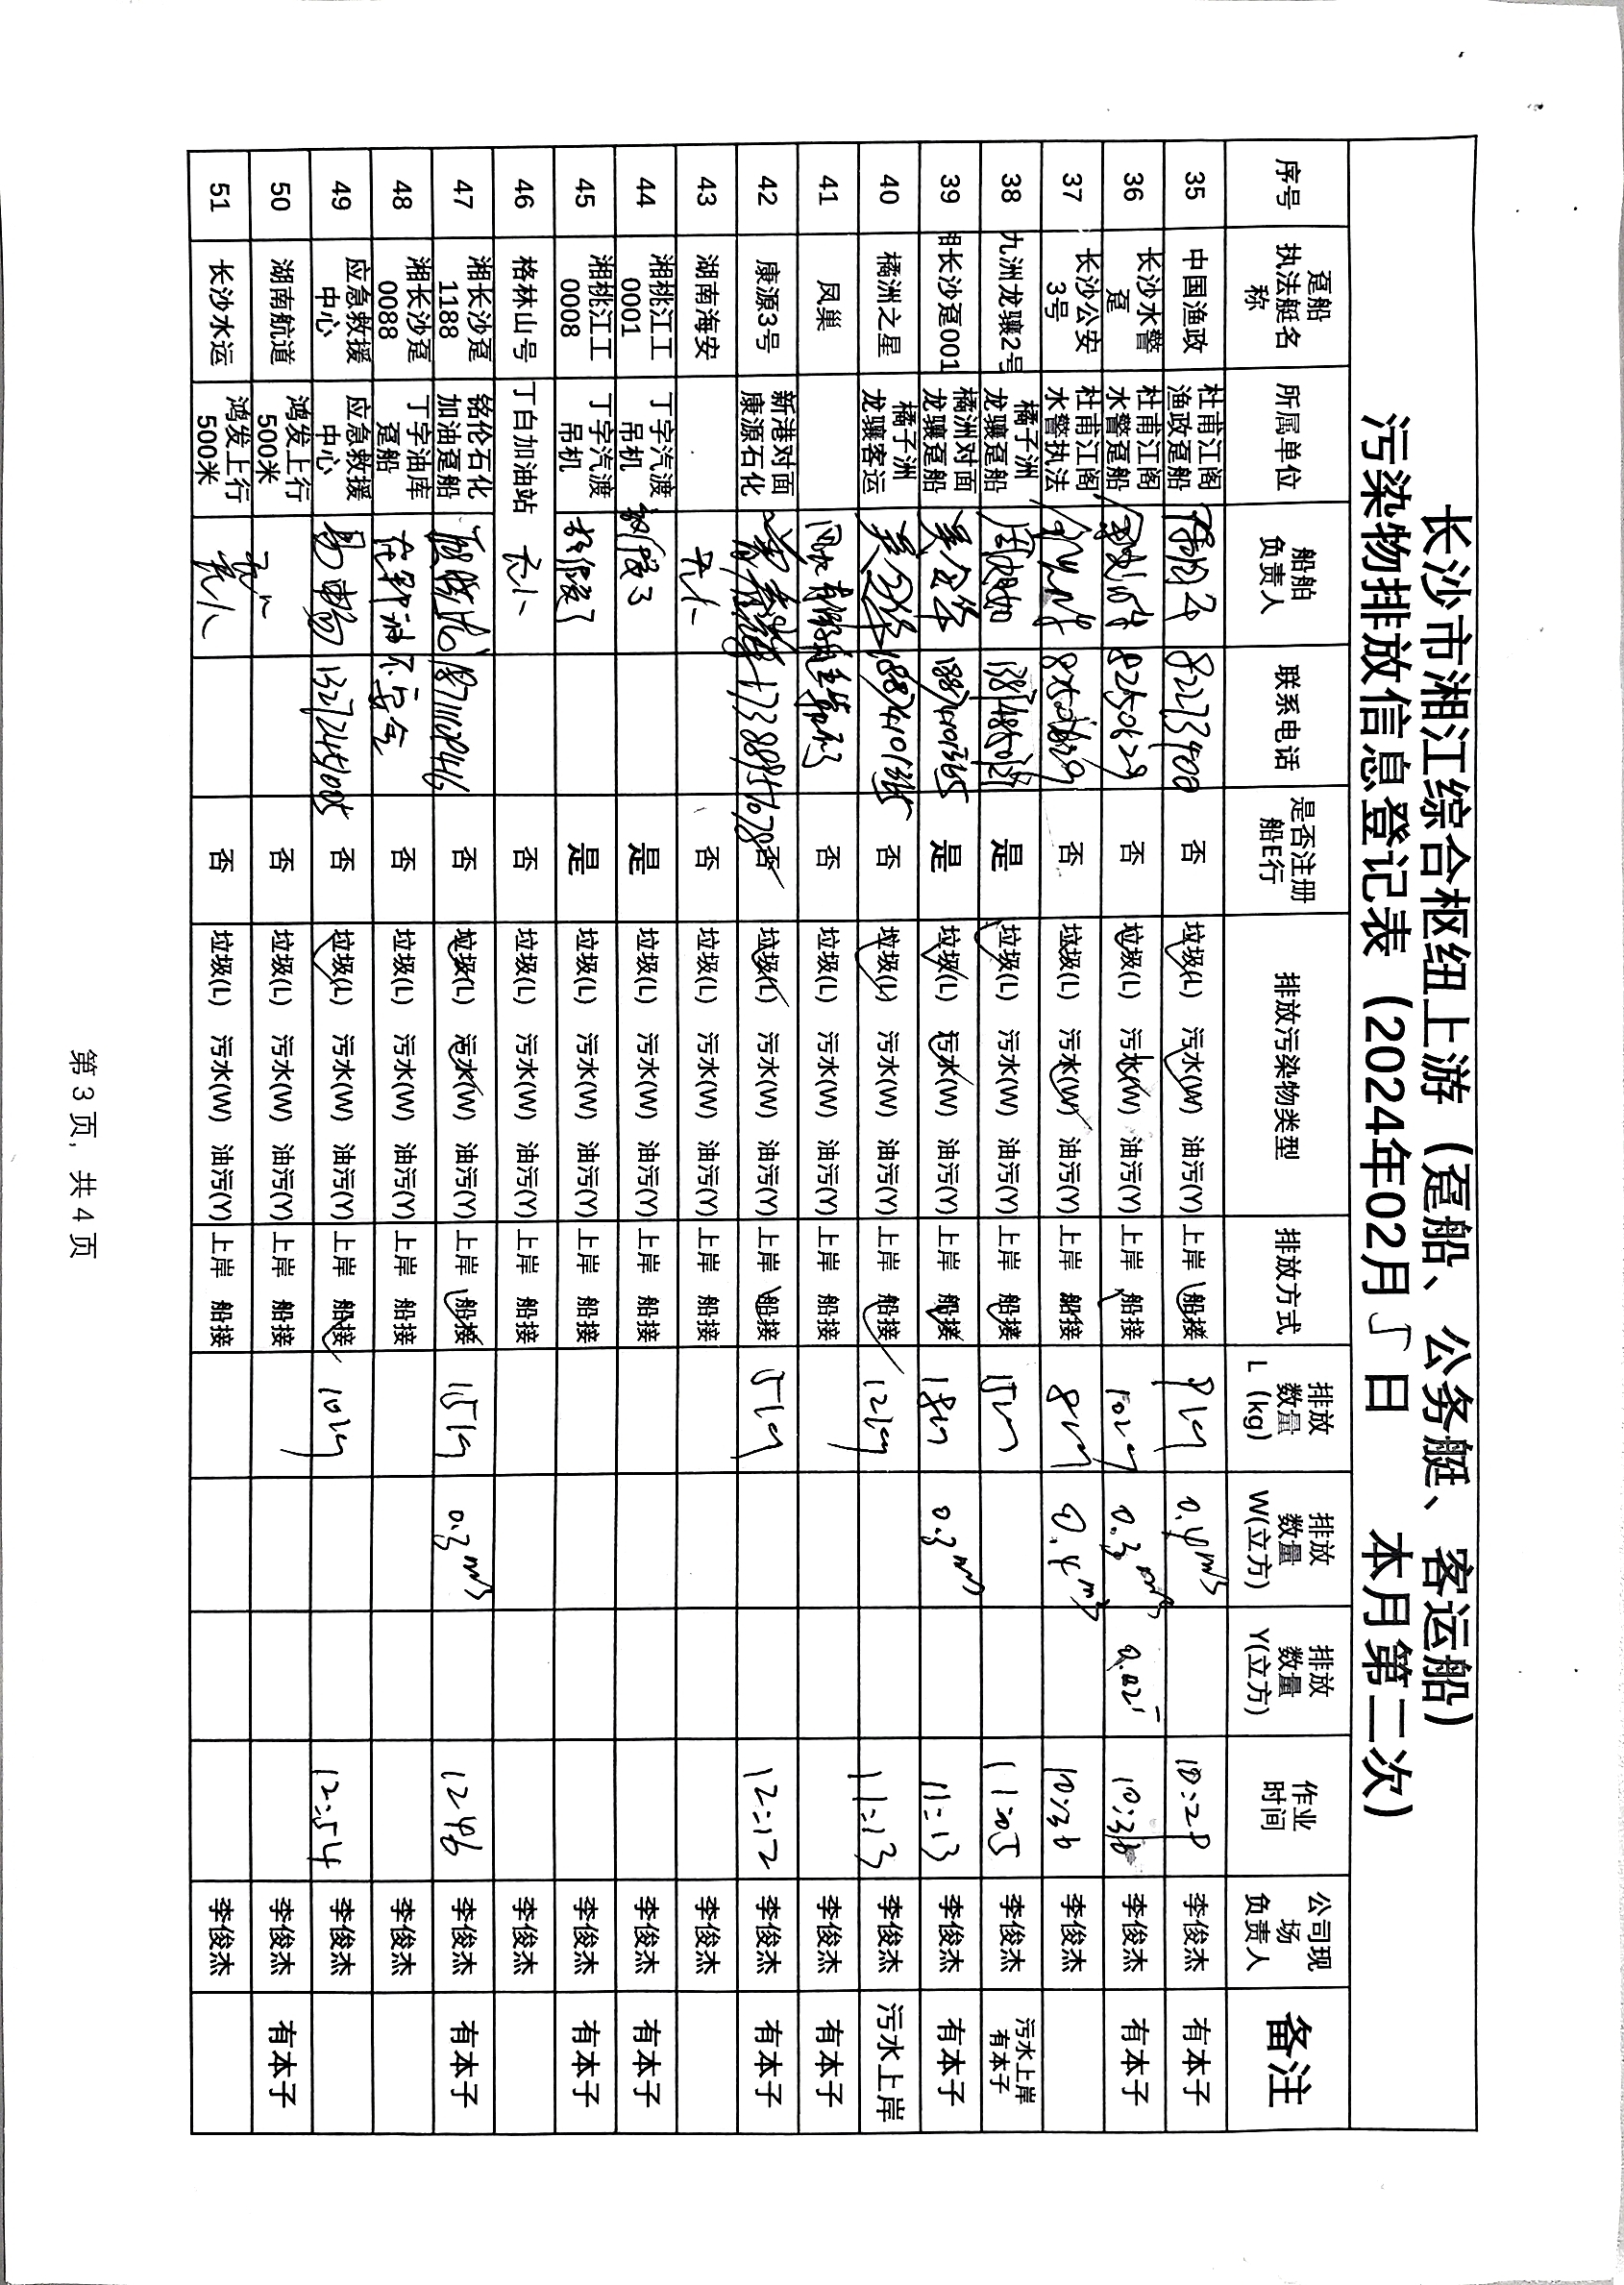 长沙市湘江综合枢纽上游（趸船、公务艇、客运船）
污染物排放信息登记表（2024年02月5日 本月第二次）
序号 趸船执法艇名称 所属单位 船舶负责人 联系电话 是否注册船E行 排放污染物类型 排放方式 排放数量L（kg） 排放数量W(立方) 排放数量Y(立方) 作业时间 公司现场负责人 备注
35 中国渔政 杜甫江阁渔政趸船 82273400 否 垃圾(L) 污水(W) 油污(Y) 上岸 船接 0.4m3 李俊杰 有本子
36 长沙水警趸 杜甫江阁水警趸船 8250629 否 垃圾(L) 污水(W) 油污(Y) 上岸 船接 10kg 0.3m3 0.02 10:36 李俊杰 有本子
37 长沙公安3号 杜甫江阁水警执法 否 垃圾(L) 污水(W) 油污(Y) 上岸 船接 8kg 0.4m3 10:36 李俊杰
38 九洲龙骧2号 橘子洲龙骧趸船 是 垃圾(L) 污水(W) 油污(Y) 上岸 船接 15kg 11:05 李俊杰 污水上岸有本子
39 相长沙趸001 橘洲对面龙骧趸船 18874101365 是 垃圾(L) 污水(W) 油污(Y) 上岸 船接 18kg 0.3m3 11:13 李俊杰 有本子
40 橘洲之星 橘子洲龙骧客运 18874101365 否 垃圾(L) 污水(W) 油污(Y) 上岸 船接 12kg 11:13 李俊杰 污水上岸
41 凤巢 否 垃圾(L) 污水(W) 油污(Y) 上岸 船接 李俊杰 有本子
42 康源3号 新港对面康源石化 否 垃圾(L) 污水(W) 油污(Y) 上岸 船接 5kg 12:12 李俊杰 有本子
43 湖南海安 无人 否 垃圾(L) 污水(W) 油污(Y) 上岸 船接 李俊杰
44 湘桃江工0001 丁字汽渡吊机 是 垃圾(L) 污水(W) 油污(Y) 上岸 船接 李俊杰 有本子
45 湘桃江工0008 丁字汽渡吊机 是 垃圾(L) 污水(W) 油污(Y) 上岸 船接 李俊杰 有本子
46 格林山号 丁白加油站 无人 否 垃圾(L) 污水(W) 油污(Y) 上岸 船接 李俊杰
47 湘长沙趸1188 铭伦石化加油趸船 否 垃圾(L) 污水(W) 油污(Y) 上岸 船接 15kg 0.3m3 1246 李俊杰 有本子
48 湘长沙趸0088 丁字油库趸船 在卸油不安全 否 垃圾(L) 污水(W) 油污(Y) 上岸 船接 李俊杰
49 应急救援中心 应急救援中心 否 垃圾(L) 污水(W) 油污(Y) 上岸 船接 10kg 12:54 李俊杰
50 湖南航道 鸿发上行500米 无人 否 垃圾(L) 污水(W) 油污(Y) 上岸 船接 李俊杰 有本子
51 长沙水运 鸿发上行500米 无人 否 垃圾(L) 污水(W) 油污(Y) 上岸 船接 李俊杰
第 3 页, 共 4 页